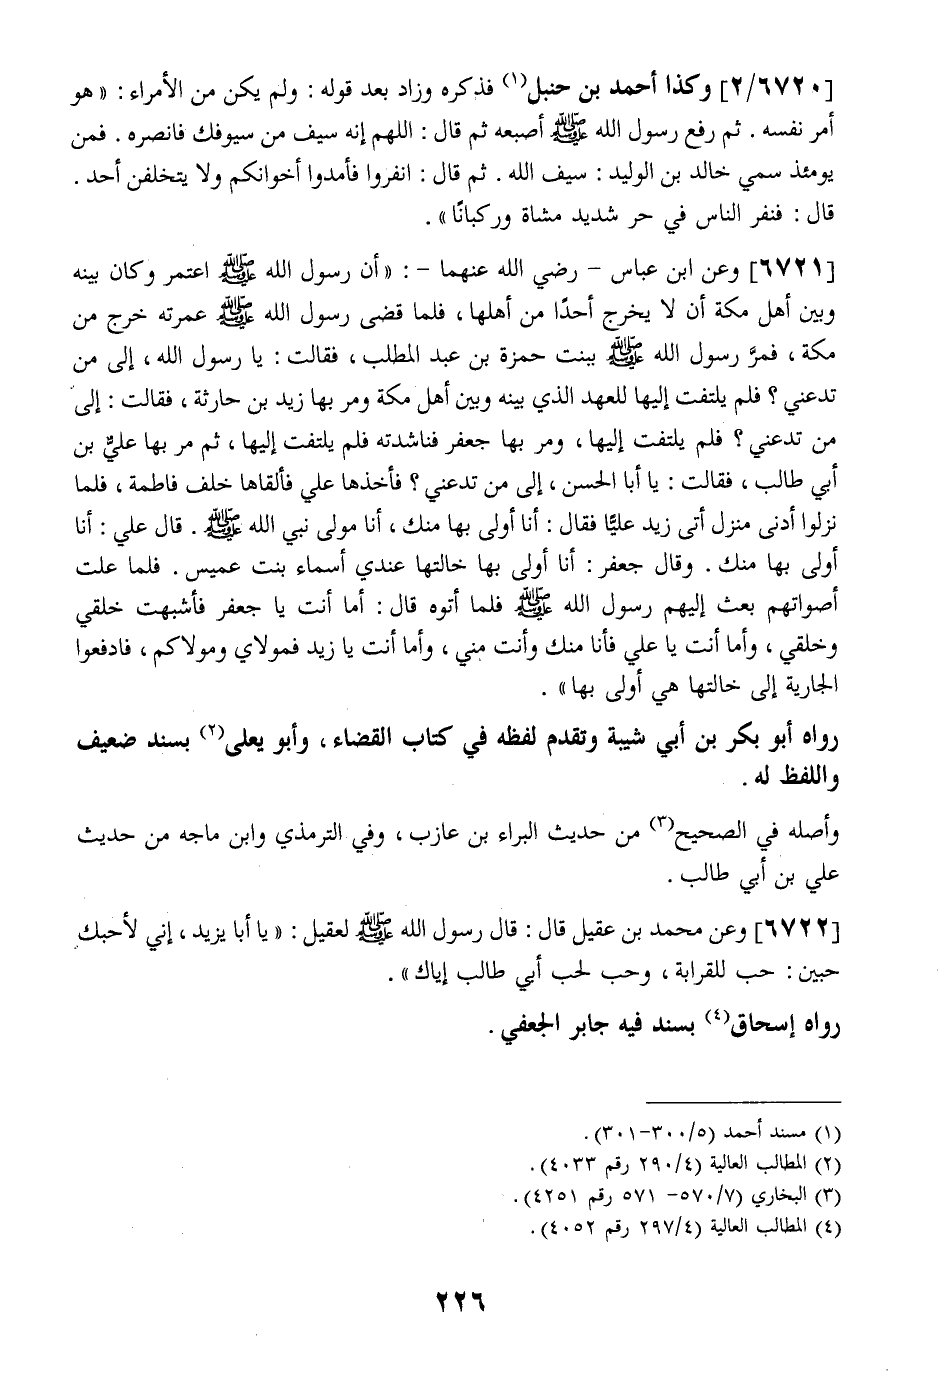 [٢/٦٧٢٠] وكذا أحمد بن حنبل(١) فذكره وزاد بعد قوله : ولم يكن من الأمراء : « هو
أمر نفسه . ثم رفع رسول الله ﷺ أصبعه ثم قال : اللهم إنه سيف من سيوفك فانصره . فمن
يومئذ سمي خالد بن الوليد : سيف الله . ثم قال : انفروا فأمدوا أخوانكم ولا يتخلفن أحد .
قال : فنفر الناس في حر شديد مشاة وركبانًا» .
[٦٧٢١] وعن ابن عباس - رضي الله عنهما - : « أن رسول الله ﷺ اعتمر وكان بينه
وبين أهل مكة أن لا يخرج أحدًا من أهلها ، فلما قضى رسول الله ﷺ عمرته خرج من
مكة ، فمرَّ رسول الله ﷺ ببنت حمزة بن عبد المطلب ، فقالت : يا رسول الله ، إلى من
تدعني ؟ فلم يلتفت إليها للعهد الذي بينه وبين أهل مكة ومر بها زيد بن حارثة ، فقالت : إلى
من تدعني ؟ فلم يلتفت إليها ، ومر بها جعفر فناشدته فلم يلتفت إليها ، ثم مر بها عليٌّ بن
أبي طالب ، فقالت : يا أبا الحسن ، إلى من تدعني ؟ فأخذها علي فألقاها خلف فاطمة ، فلما
نزلوا أدنى منزل أتى زيد عليًّا فقال : أنا أولى بها منك ، أنا مولى نبي الله ﷺ . قال علي : أنا
أولى بها منك . وقال جعفر : أنا أولى بها خالتها عندي أسماء بنت عميس . فلما علت
أصواتهم بعث إليهم رسول الله ﷺ فلما أتوه قال : أما أنت يا جعفر فأشبهت خلقي
وخلقي ، وأما أنت يا علي فأنا منك وأنت مني ، وأما أنت يا زيد فمولاي ومولاكم ، فادفعوا
الجارية إلى خالتها هي أولى بها» .
رواه أبو بكر بن أبي شيبة وتقدم لفظه في كتاب القضاء ، وأبو يعلى(٢) بسند ضعيف
واللفظ له .
وأصله في الصحيح(٣) من حديث البراء بن عازب ، وفي الترمذي وابن ماجه من حديث
علي بن أبي طالب .
[٦٧٢٢] وعن محمد بن عقيل قال : قال رسول الله ﷺ لعقيل : « يا أبا يزيد ، إني لأحبك
حبين : حب للقرابة ، وحب لحب أبي طالب إياك» .
رواه إسحاق(٤) بسند فيه جابر الجعفي .
(١) مسند أحمد (٣٠٠/٥-٣٠١) .
(٢) المطالب العالية (٢٩٠/٤ رقم ٤٠٣٣) .
(٣) البخاري (٥٧٠/٧- ٥٧١ رقم ٤٢٥١) .
(٤) المطالب العالية (٢٩٧/٤ رقم ٤٠٥٢) .
٢٢٦